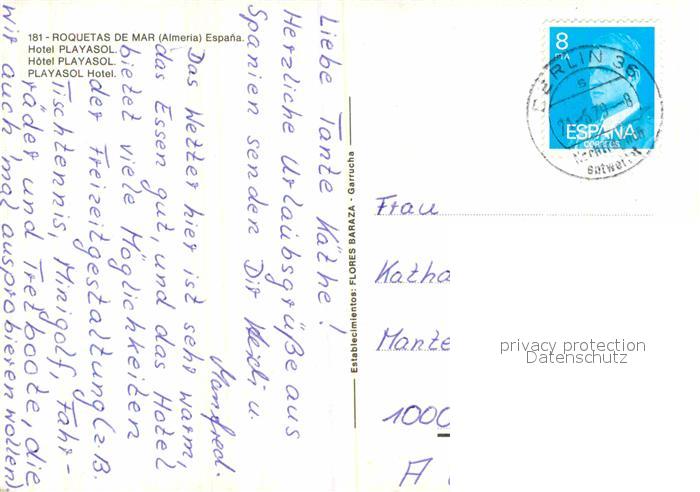 181 - ROQUETAS DE MAR (Almeria) España.
Hotel PLAYASOL.
Hôtel PLAYASOL.
PLAYASOL Hotel.
Liebe Tante Käthe!
Herzliche Urlaubsgrüße aus
Spanien senden Dir Heidi u.
Manfred.
Das Wetter hier ist sehr warm,
das Essen gut, und das Hotel
bietet viele Möglichkeiten
der Freizeitgestaltung (z.B.
Tischtennis, Minigolf, Fahr-
räder und Tretboote, die
wir auch mal ausprobieren wollen)
Establecimientos: FLORES BARAZA - Garrucha
8
PTA
ESPAÑA
CORREOS
BERLIN 36
Nachträglich
entwertet
Frau
Katha
Mante
1000
A
privacy protection
Datenschutz